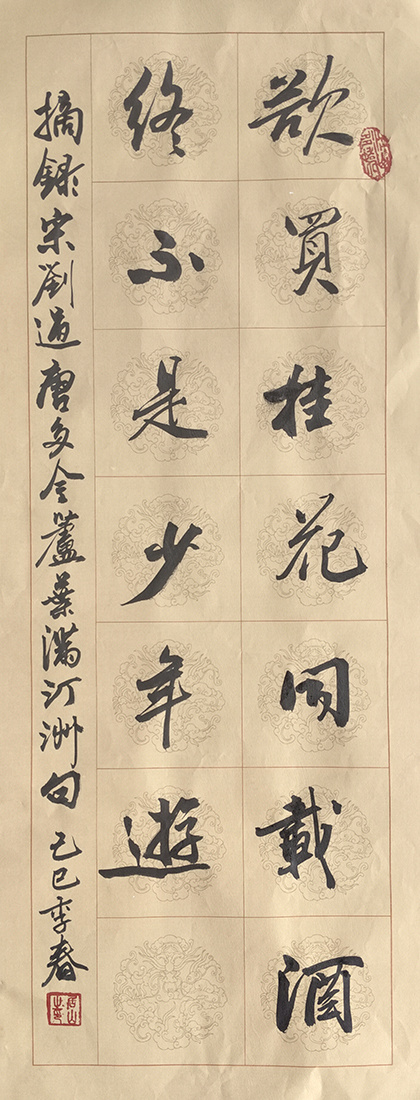 欲買桂花同載酒
終不是少年遊
摘錄宋劉過唐多令蘆葉滿汀洲句 乙巳季春